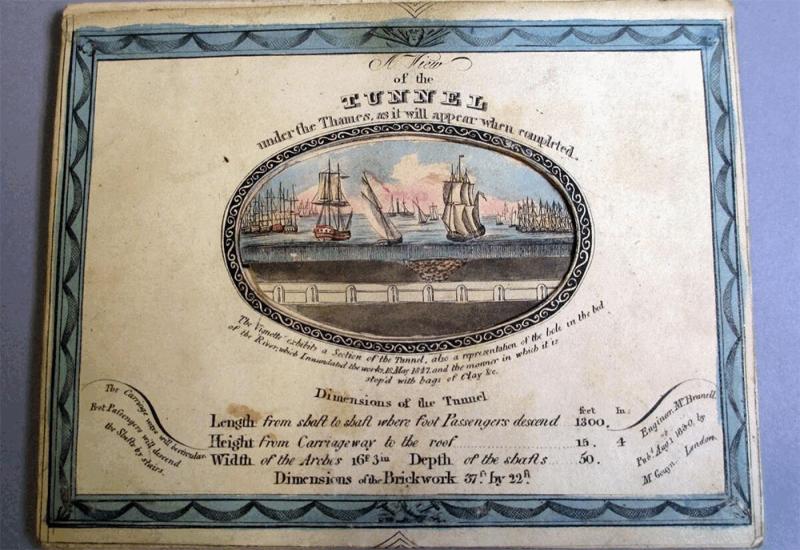 A View
of the
TUNNEL
under the Thames, as it will appear when completed.
The Vignette exhibits a Section of the Tunnel, also a representation of the hole in the bed
of the River, which Innundated the works, 18, May 1827, and the manner in which it is
stop'd with bags of Clay &c.
Dimensions of the Tunnel
feet In:
Length from shaft to shaft where foot Passengers descend 1300.
Height from Carriageway to the roof 15. 4
Width of the Arches 16f 3in Depth of the shafts 50.
Dimensions of the Brickwork 37.f by 22f.
The Carriage ways will be circular
Foot Passengers will descend
the Shafts by stairs.
Engineer, Mr. Brunell.
Pubd. Augt. 1, 1830, by
M. Gouyn. London.